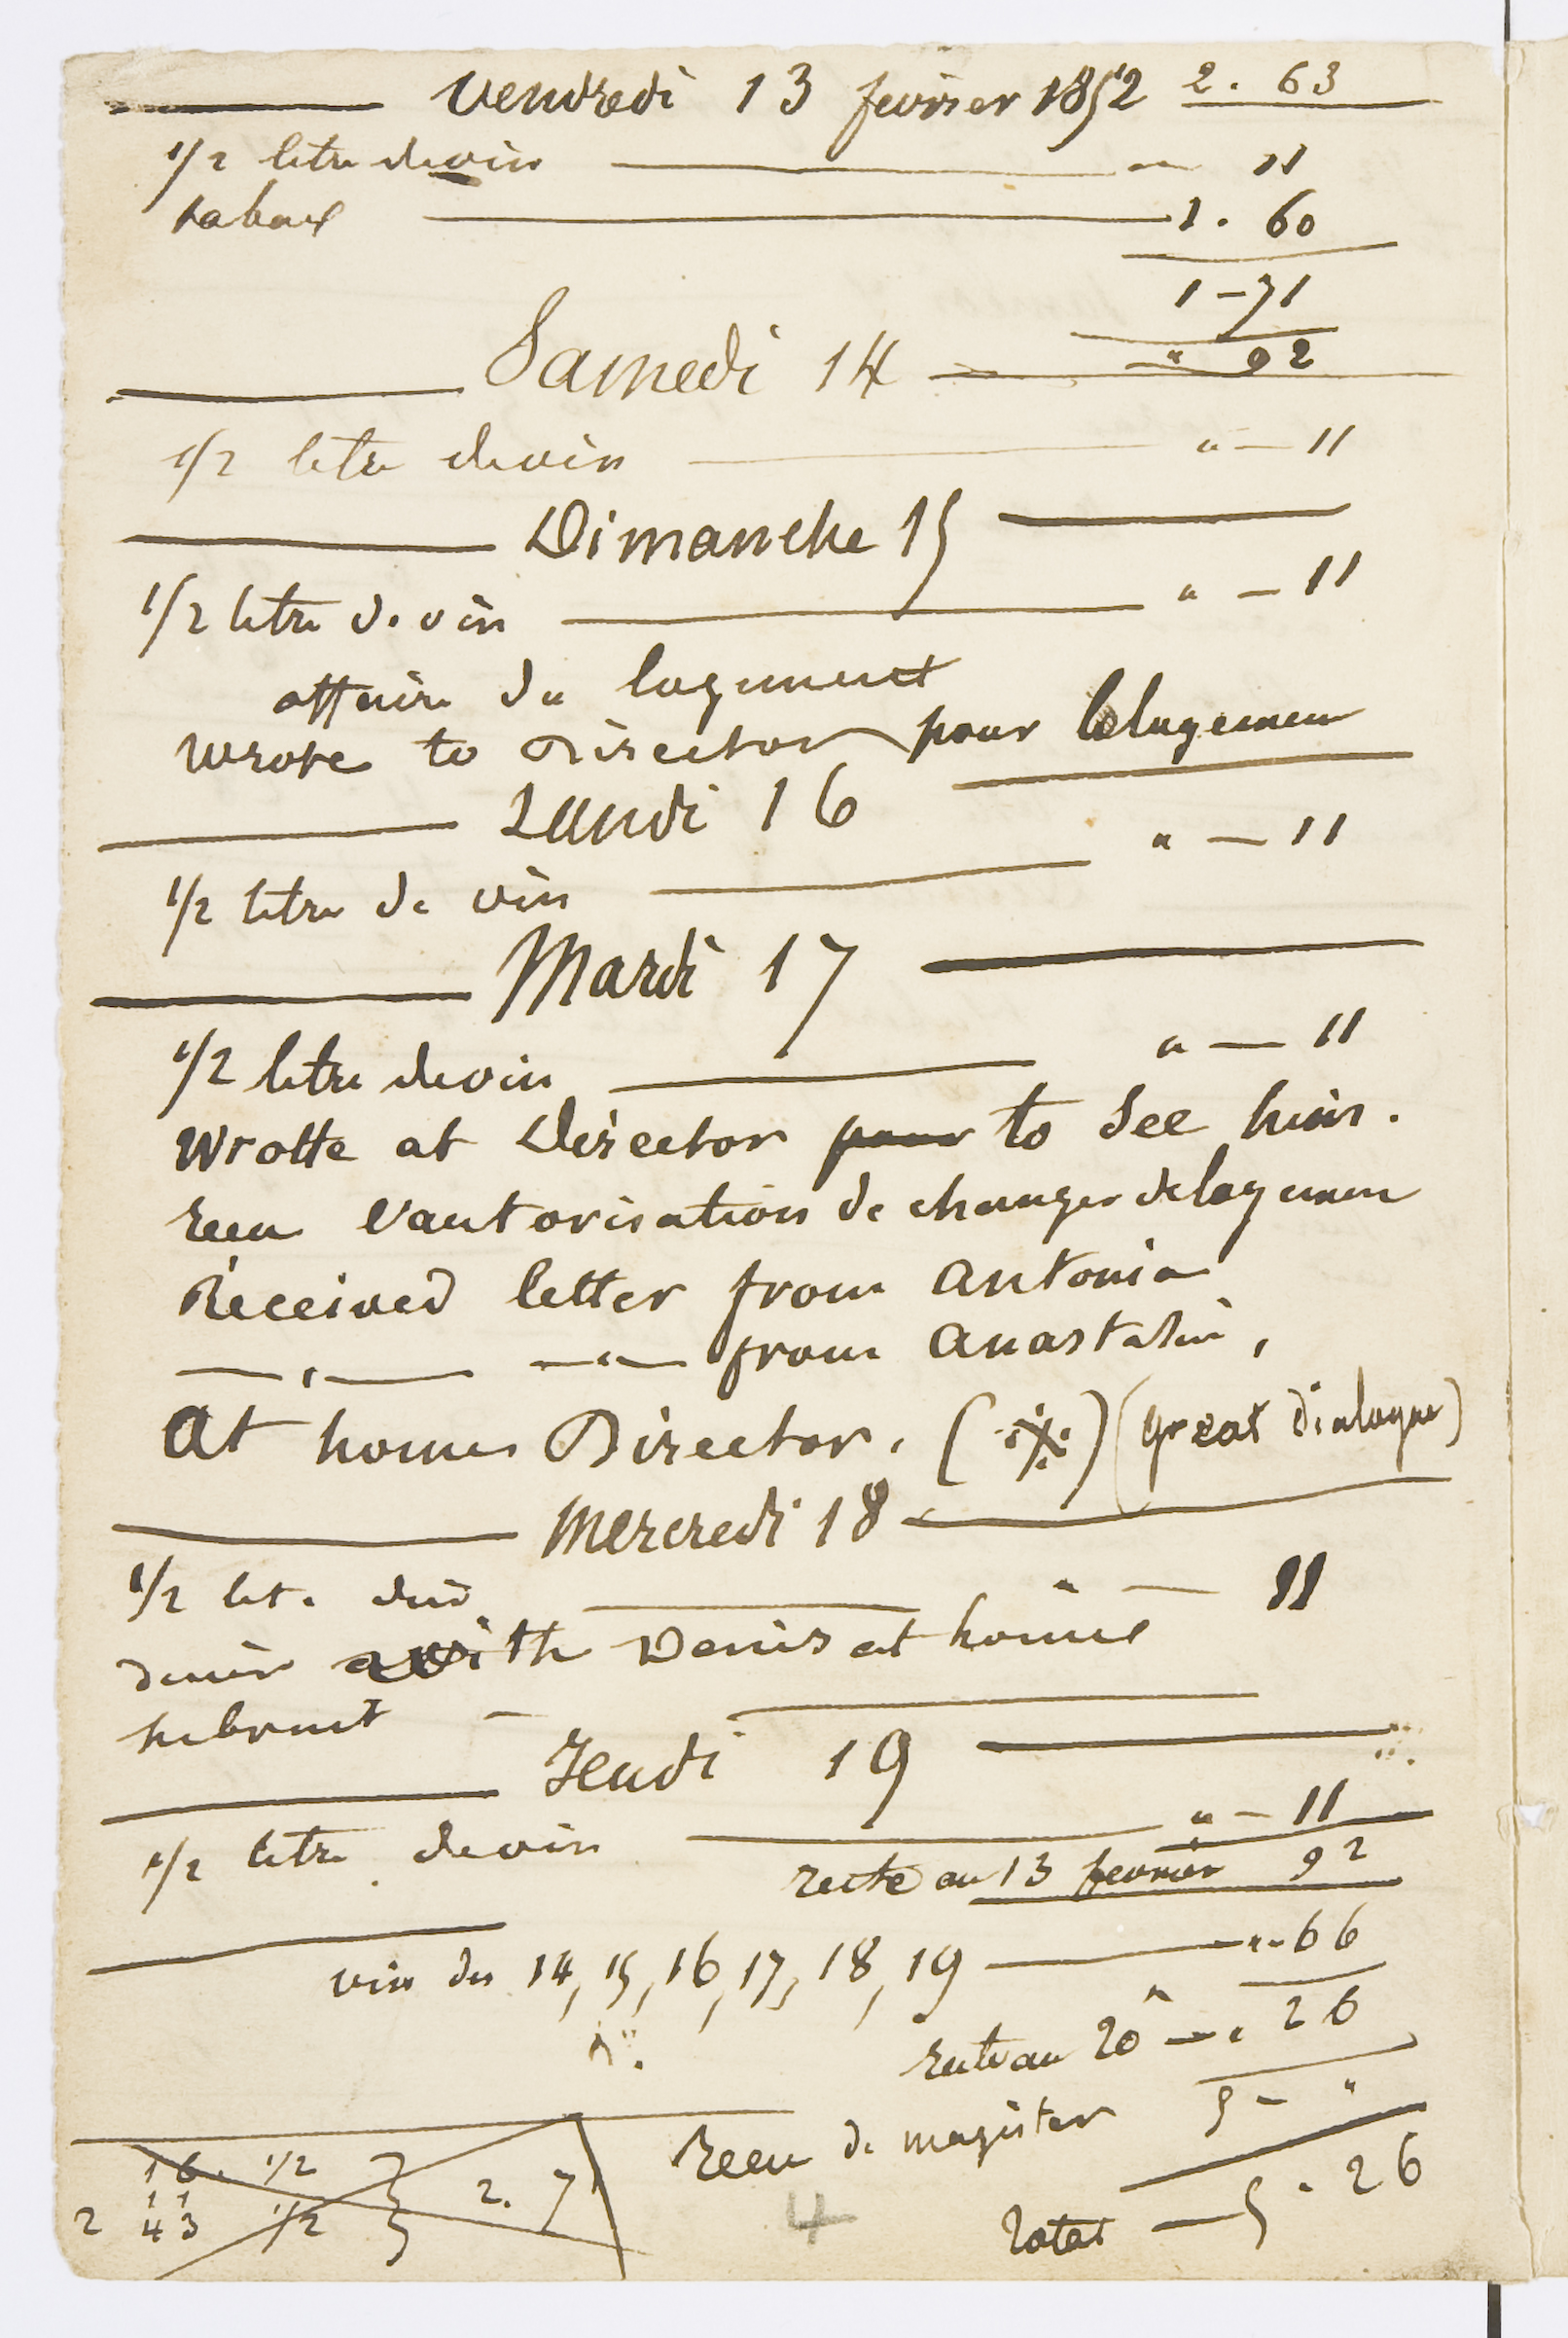 Vendredi 13 fevrier 1852 2. 63
1/2 litre de vin — " 11
tabac — 1. 60
1 - 71
Samedi 14 — " 92
1/2 litre de vin — " — 11
Dimanche 15
1/2 litre de vin — " — 11
affaire du logement
wrote to Director pour le logemen
Lundi 16
1/2 litre de vin — " — 11
Mardi 17
1/2 litre de vin — " — 11
Wrotte at Director pour to see him.
recu l'autorisation de changer de logemen
Received letter from Antonia
— " — — " — from
At home Director. (great dialogue)
Mercredi 18
1/2 lit. — " — 11
diner with Denis at home
Jeudi 19
1/2 litre de vin — " — 11
reste au 13 fevrier 92
vin des 14, 15, 16, 17, 18, 19 — " 66
reste au 20 — " 26
Recu de magister 5 - "
Total — 5. 26
16. 1/2
11
2 43 1/2
2. 7
4